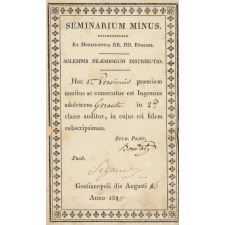 SEMINARIUM MINUS.
EX MUNIFICENTIA RR. DD. EPISCOPI.
SOLEMNIS PRÆMIORUM DISTRIBUTIO.
Hoc 1um Versionis præmium
meritus ac consecutus est Ingenuus
adolescens in 2dâ
classe auditor, in cujus rei fidem
subscripsimus.
STUD. PRÆF.
PROF.
die Augusti
Anno